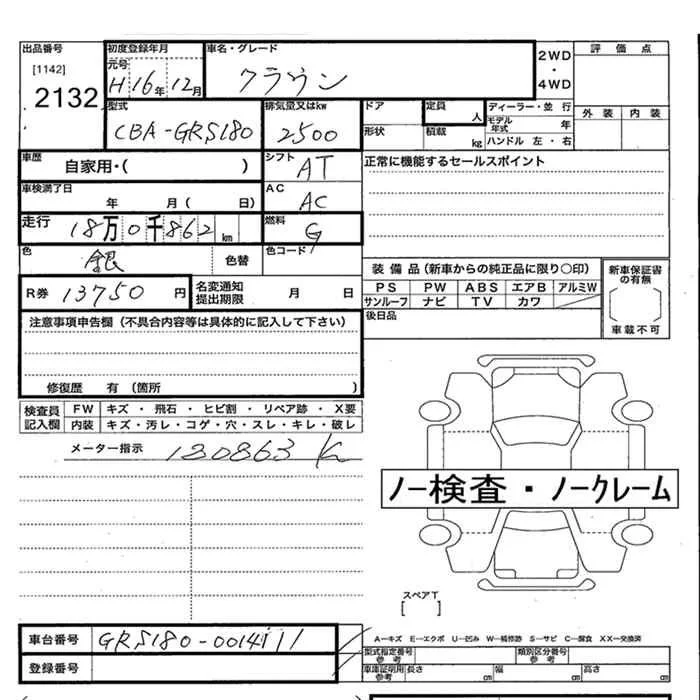 出品番号 初度登録年月 車名・グレード
[1142] 元号
2132 H16年12月 クラウン
2WD
・
4WD
評価点
外装 内装
型式 排気量又はkw ドア 定員 人 ディーラー・並 行
CBA-GRS180 2500 形状 積載 kg モデル年式 年
ハンドル 左・右
車歴 自家用・( ) シフト AT 正常に機能するセールスポイント
車検満了日 年 月( 日) AC AC
走行 18万0千862km 燃料 G
色 銀 色替 色コード
R券 13750円 名変通知提出期限 月 日
装備品(新車からの純正品に限り○印) 新車保証書の有無
PS PW ABS エアB アルミW
サンルーフ ナビ TV カワ
車載不可
後日品
注意事項申告欄(不具合内容等は具体的に記入して下さい)
修復歴 有(箇所 )
検査員記入欄 FW キズ・飛石・ヒビ割・リペア跡・X要
内装 キズ・汚レ・コゲ・穴・スレ・キレ・破レ
メーター指示 180863 K
ノー検査・ノークレーム
スペアT
[ ]
車台番号 GRS180-0014111
登録番号
A―キズ E―エクボ U―凹み W―補修跡 S―サビ C―腐食 XX―交換済
型式指定番号 参考 類別区分番号 参考
車庫証明用 参考 長さ cm 幅 cm 高さ cm